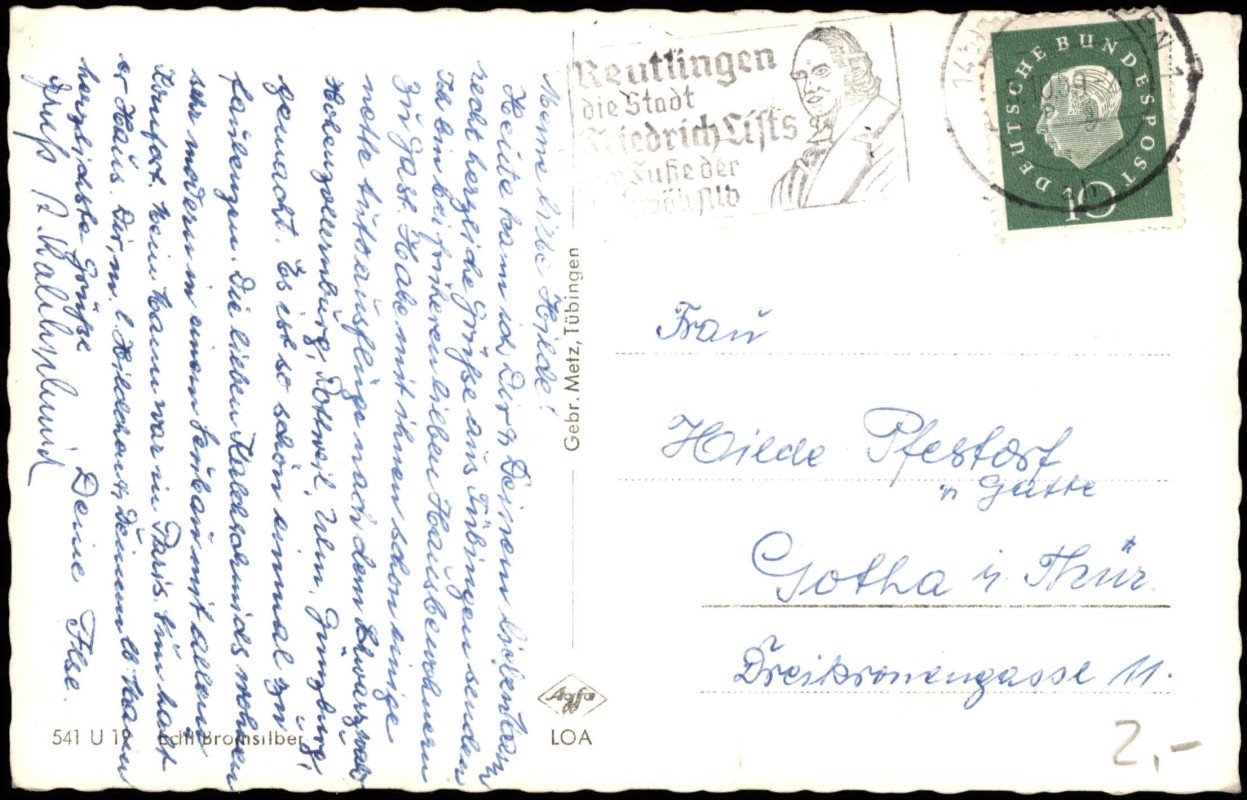 Meine liebe Hilde!
Heute kann ich Dir u. Deinem lieben Mann
recht herzliche Grüße aus Tübingen senden.
Ich bin bei früheren lieben Hausbewohnern
zu Gast. Habe mit ihnen schon einige
nette Autoausflüge nach dem Schwarzwald
Hohenzollernburg, Rottweil, Ulm, Günzburg,
gemacht. Es ist so schön einmal zu
faulenzen. Die lieben Kaltschmids wohnen
sehr modern in einem Neubau mit allem
Komfort. Mein Mann war in Paris. Nun hält
er Haus. Dir, m. l. Hildchen u. Deinem lb. Mann
herzlichste Grüße
Deine Ilse.
Gruß A. Kaltschmid
541 U 19 Echt Bromsilber
Gebr. Metz, Tübingen
Agfa
LOA
Reutlingen
die Stadt
Friedrich Lists
am Fuße der
Alb
DEUTSCHE BUNDESPOST
10
Frau
Hilde Pfestorf
u Gatte
Gotha i. Thür.
Dreikronengasse 11.
2,-